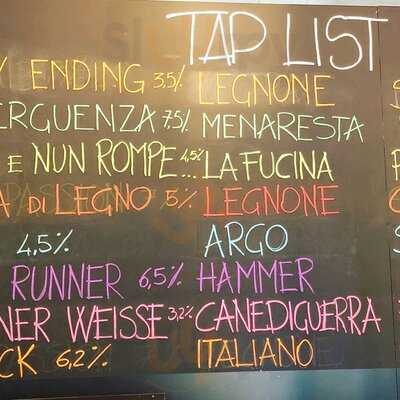 TAP LIST
Y ENDING 3,5% LEGNONE
ERGUENZA 7,5% MENARESTA
E NUN ROMPE... 4,5% LA FUCINA
A DI LEGNO 5% LEGNONE
4,5% ARGO
RUNNER 6,5% HAMMER
NER WEISSE 3,2% CANEDIGUERRA
CK 6,2% ITALIANO